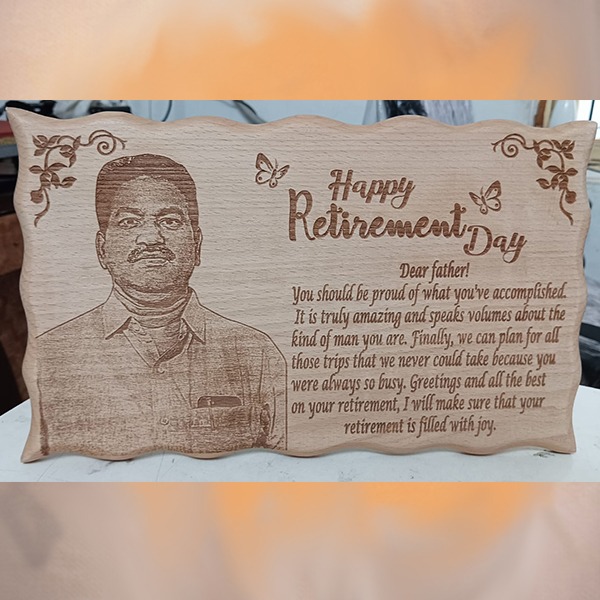 Happy
Retirement
Day
Dear father!
You should be proud of what you've accomplished.
It is truly amazing and speaks volumes about the
kind of man you are. Finally, we can plan for all
those trips that we never could take because you
were always so busy. Greetings and all the best
on your retirement, I will make sure that your
retirement is filled with joy.